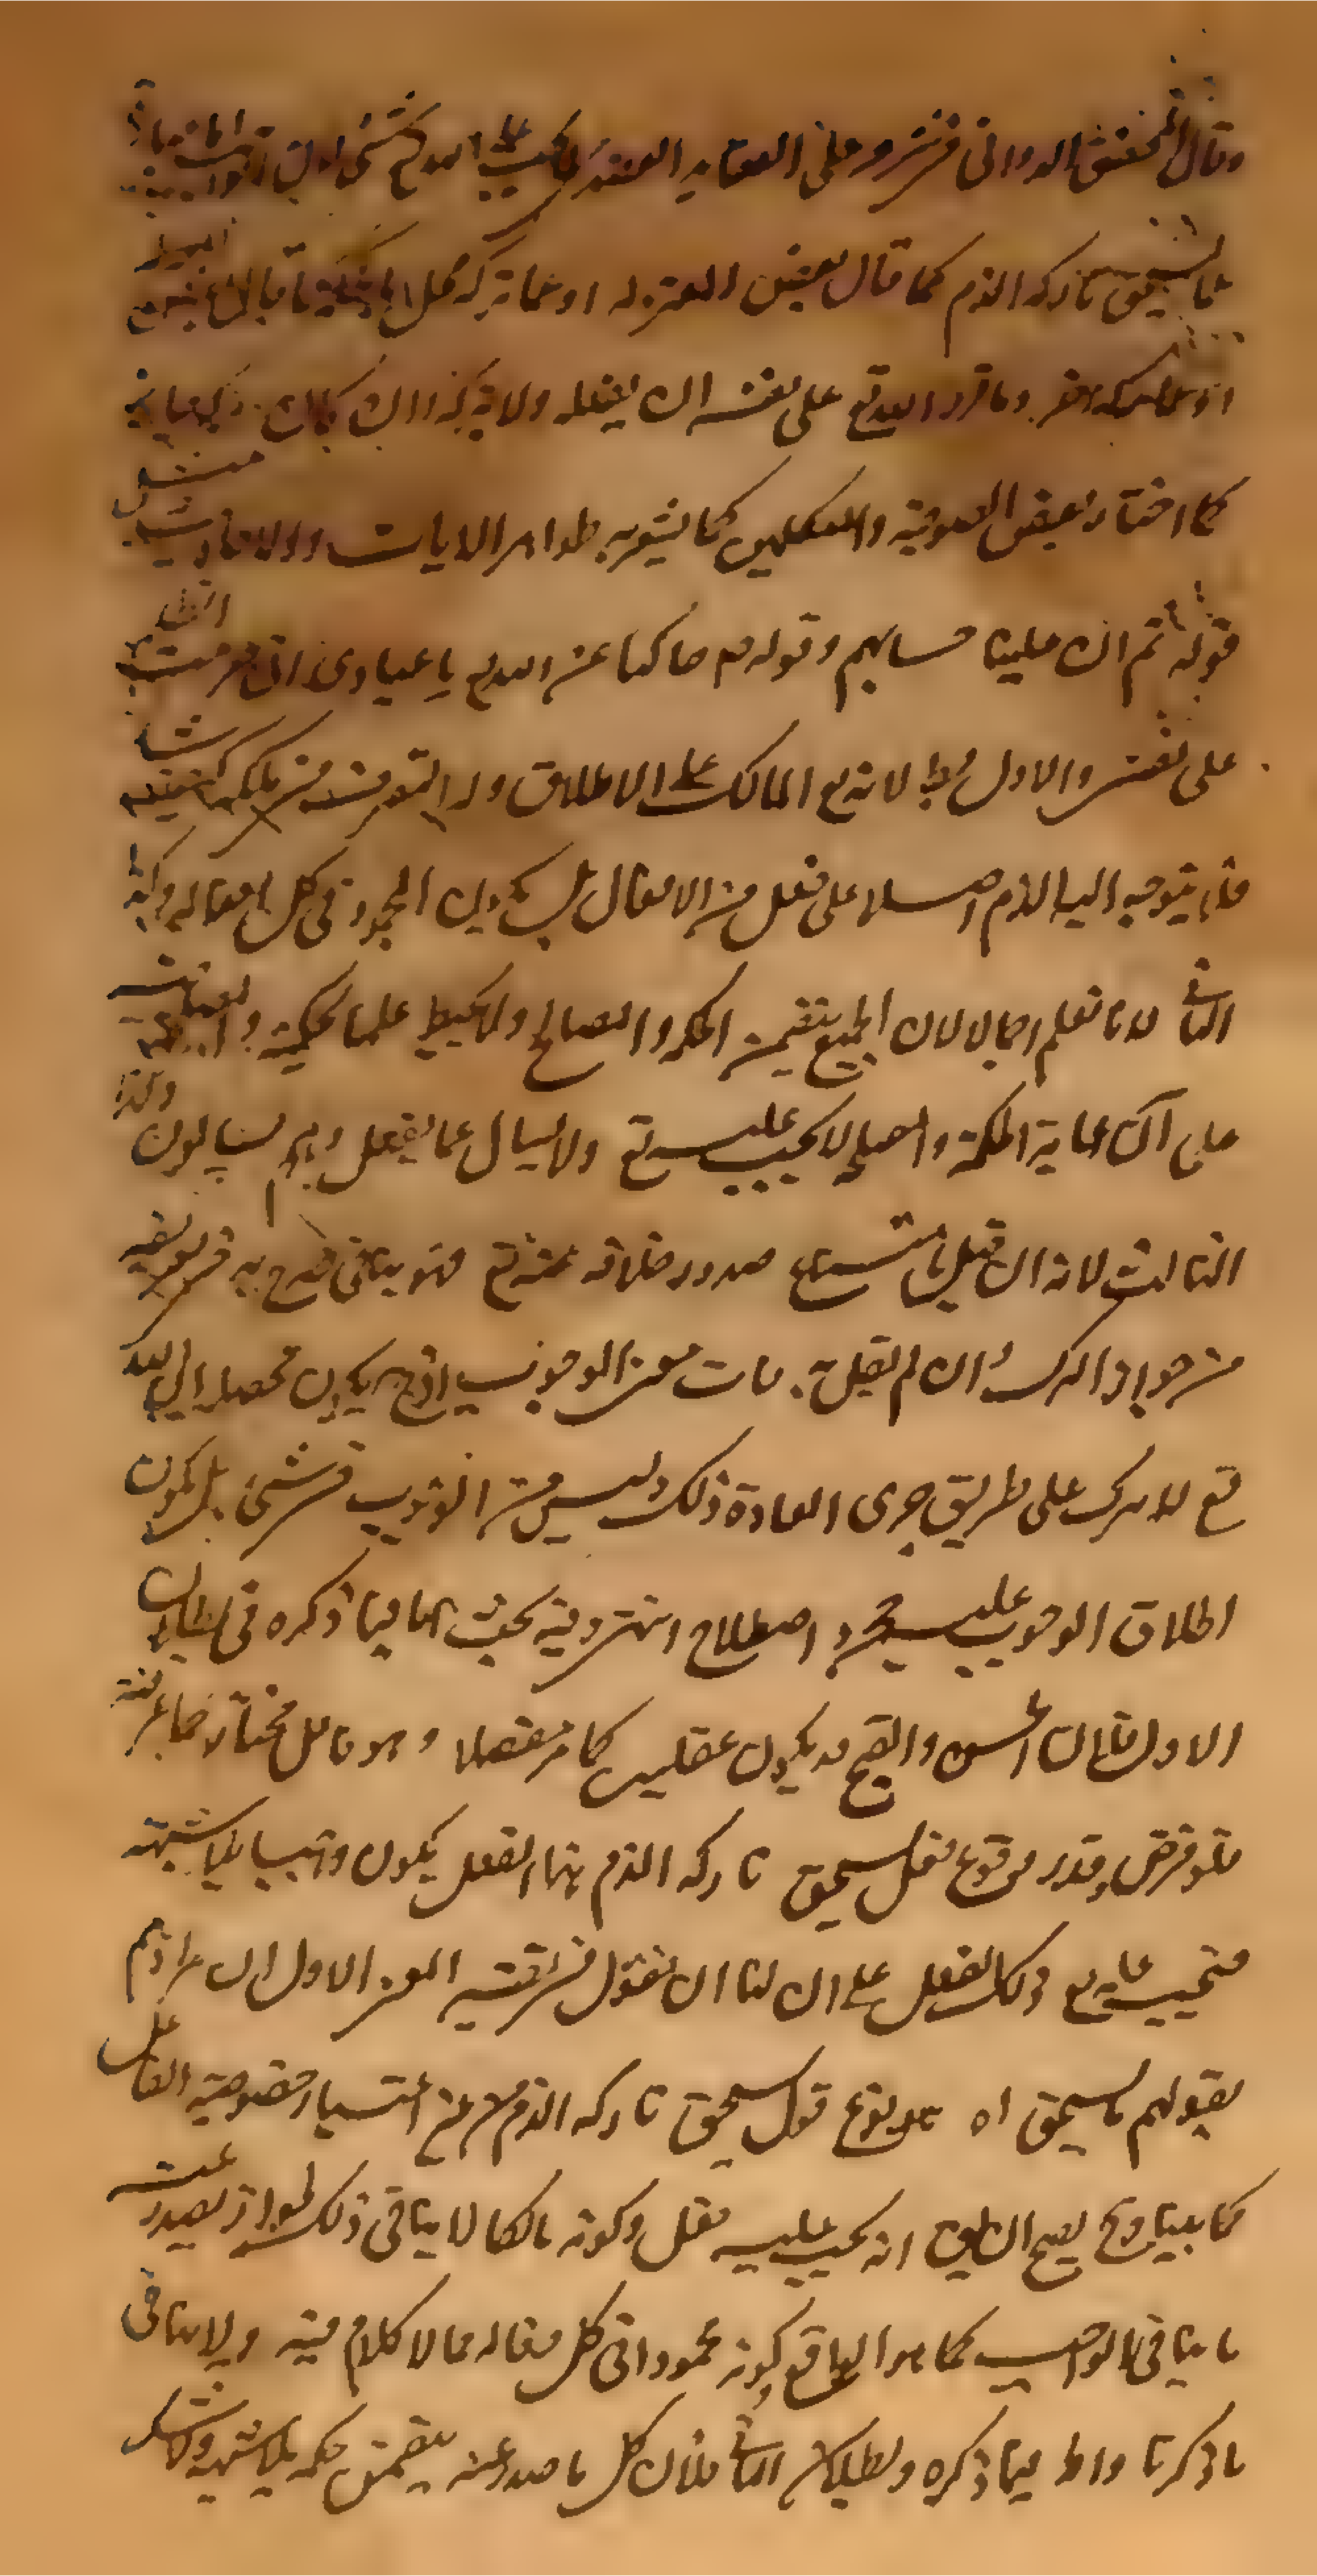 وقال المحقق الدواني في شرحه على العقايد العضديه لا يجب على الله تع شئ لان الواجب اما عبارة
عما يستحق تاركه الذم كما قال بعض المعتزله او عما تركه مخل بالحكمة كما قاله بعض
او عما قدر الله تع على نفسه ان يفعله ولا يتركه وان كان تركه جايز
كما اختاره بعض الصوفية والمتكلمين كما يشعر به ظواهر الايات والاحاديث مثل
قوله تع ثم ان علينا حسابهم وقوله ص حاكيا عن الله تع يا عبادي اني حرمت الظلم
على نفسي والاول بط لانه تع المالك على الاطلاق وله التصرف في ملكه كيف يشاء
فلا يتوجه اليه الذم اصلا على فعل من الافعال بل هو المحمود في كل افعاله وكذا
الثاني لانا نعلم اجمالا لان الجميع يتضمن الحكم والمصالح ولا يحيط علمنا بحكمته و
على ان رعاية الحكمة والمصلحة لا يجب عليه تع ولا يسال عما يفعل وهم يسالون وكذا
الثالث لانه ان قيل بامتناع صدور خلافه عنه تع فهو ينافي ما صرح به في تعريفه
من جواز الترك وان لم يقل به فات معنى الوجوب اذ ح يكون محصله ان الله
تع لا يترك على طريق جرى العادة ذلك وليس من الوجوب في شئ بل يكون
اطلاق الوجوب عليه مجرد اصطلاح انتهى وفيه بحث اما فيما ذكره في ابطال
الاول فلان الحسن والقبح قد يكون عقليين كما مر مفصلا وهو فاعل مختار كما عرفته
فلو فرض وقدر وقوع فعل يستحق تاركه الذم بهذا الفعل يكون واجبا بلا شبهة
فيجب عليه تع ذلك الفعل على ان لنا ان نقول في تفسير المعنى الاول ان مرادهم
بقولهم ما يستحق اه نوع قول يستحق تاركه الذم من غير اعتبار خصوصية الفاعل
كما بينا وح يصح ان انه يجب عليه فعل وكونه مالكا لا ينافي ذلك لجواز ان يصدر عنه
ما ينافي الواجب كما هو الواقع وكونه محمودا في كل فعاله مما لا كلام فيه ولا ينافي
ما ذكرنا واما فيما ذكره ولبطلان الثاني فلان كل ما صدر عنه يتضمن حكمه بلا شبهة ولا شك